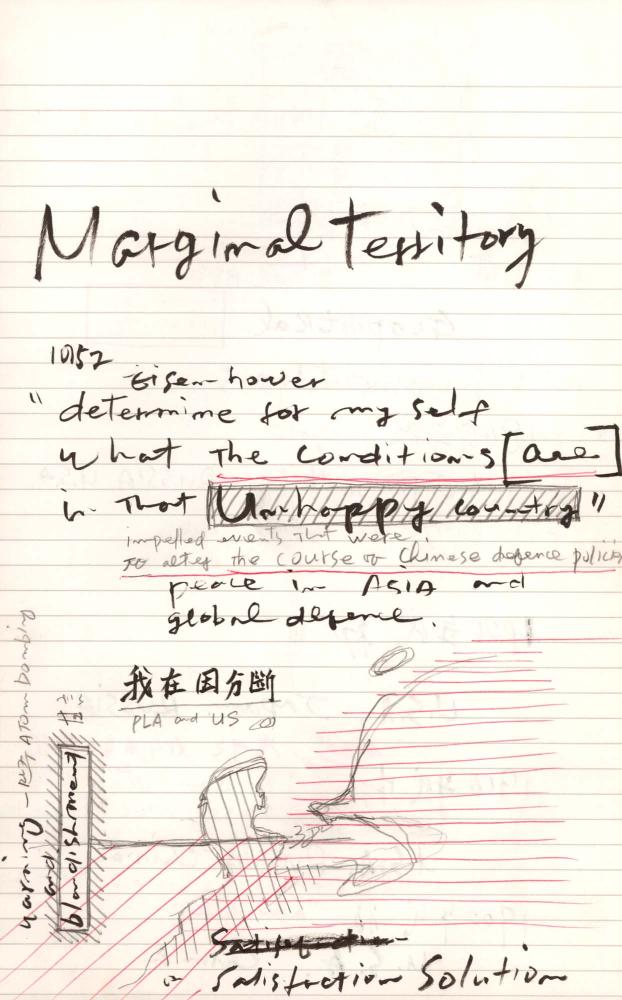 Marginal Territory
1952
Eisen-hower
" determine for my self
what the conditions [are]
in that Unhappy country "
impelled events that were
to alter the course of Chinese defence policies
peace in ASIA and
global defence.
我在国分断
PLA and US
warning - Atom bombing
and
blandishment
Satisfaction
in Satisfaction Solution